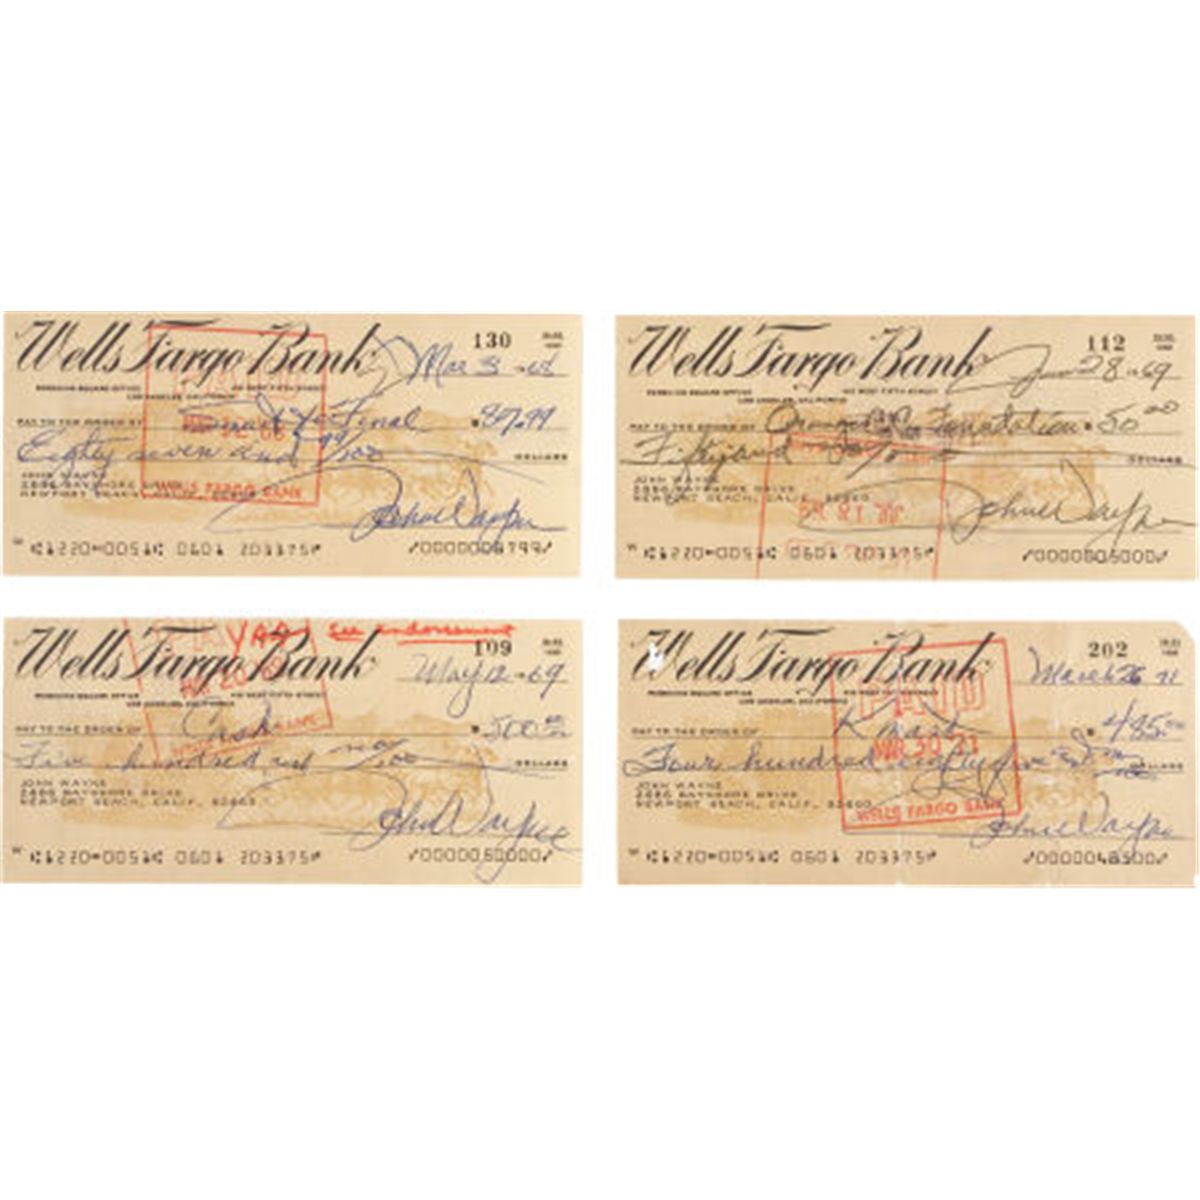 Wells Fargo Bank
130
Mar 3 68
PAY TO THE ORDER OF Smart & Final $ 87.99
Eighty seven and 99/100 DOLLARS
JOHN WAYNE
2686 BAYSHORE DRIVE
NEWPORT BEACH, CALIF.
WELLS FARGO BANK
John Wayne
⑆1220⑉0051⑆ 0601 203375⑈ ⑇0000008799⑇
Wells Fargo Bank
112
LOS ANGELES, CALIFORNIA
Jan 28 69
PAY TO THE ORDER OF Orange Co. Foundation $ 50 00
Fifty and DOLLARS
JOHN WAYNE
2686 BAYSHORE DRIVE
NEWPORT BEACH, CALIF. 92660
John Wayne
⑆1220⑉0051⑆ 0601 203375⑈ ⑇0000005000⑇
See endorsement
Wells Fargo Bank
109
May 12 69
PAY TO THE ORDER OF Cash $ 500.00
Five hundred and no/100 DOLLARS
JOHN WAYNE
2686 BAYSHORE DRIVE
NEWPORT BEACH, CALIF. 92660
John Wayne
⑆1220⑉0051⑆ 0601 203375⑈ ⑇0000050000⑇
Wells Fargo Bank
202
LOS ANGELES, CALIFORNIA
March 26 71
PAID
PAY TO THE ORDER OF K Mart $ 485.00
MAR 30 71
Four hundred eighty five DOLLARS
JOHN WAYNE
2686 BAYSHORE DRIVE
NEWPORT BEACH, CALIF. 92660
WELLS FARGO BANK
John Wayne
⑆1220⑉0051⑆ 0601 203375⑈ ⑇0000048500⑇